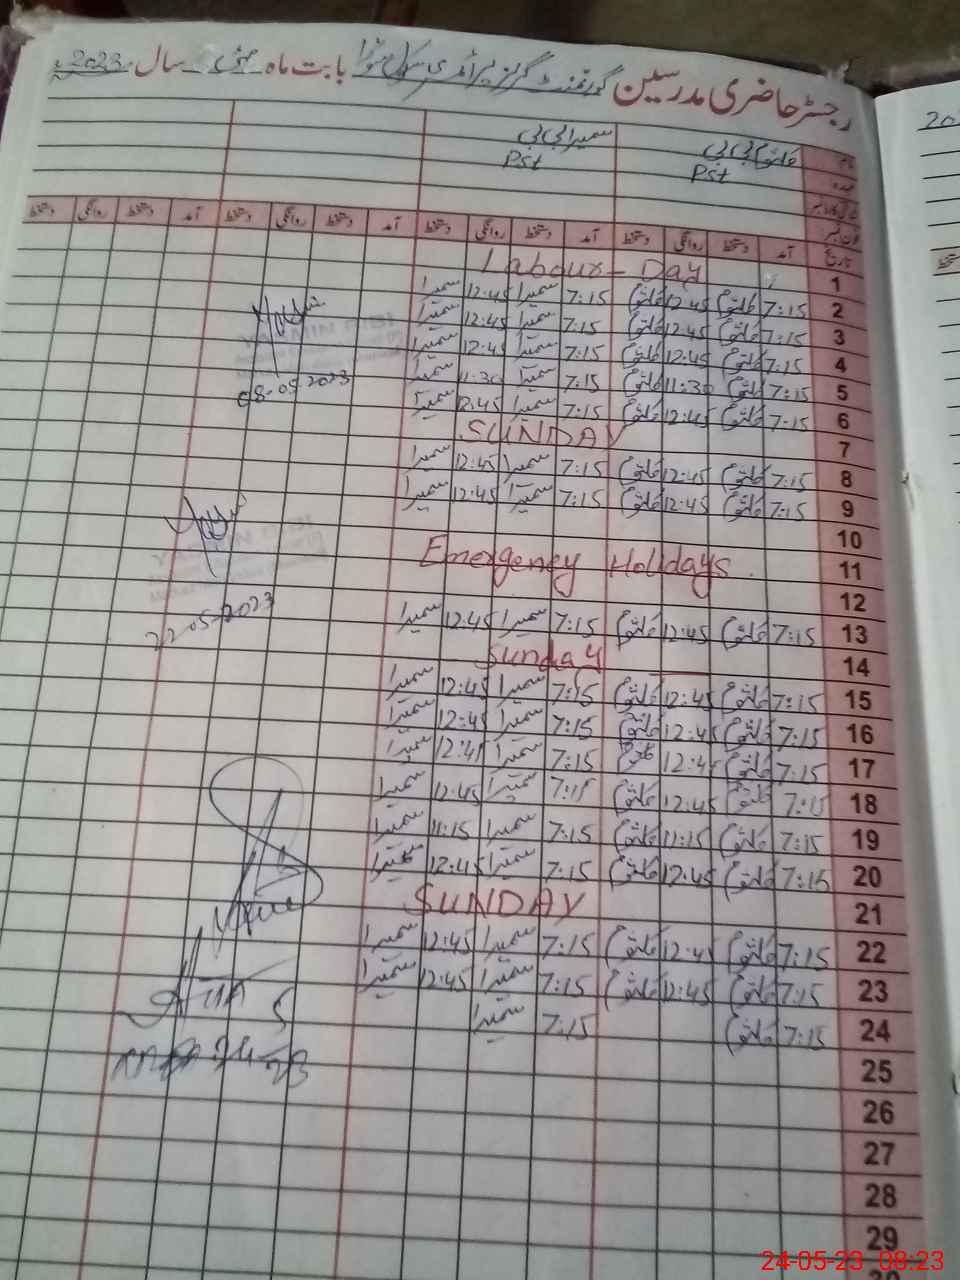 رجسٹر حاضری مدرسین گورنمنٹ گرلز پرائمری سکول بابت ماہ مئی سال 2023ء
نام کلثوم بی بی سمیرا بی بی
عہدہ Pst Pst
شناختی کارڈ نمبر
فون نمبر
تاریخ آمد دستخط روانگی دستخط آمد دستخط روانگی دستخط آمد دستخط روانگی دستخط آمد دستخط روانگی دستخط
1 Labour-Day
2 7:15 کلثوم 12:45 کلثوم 7:15 سمیرا 12:45 سمیرا
3 7:15 کلثوم 12:45 کلثوم 7:15 سمیرا 12:45 سمیرا
4 7:15 کلثوم 12:45 کلثوم 7:15 سمیرا 12:45 سمیرا
5 7:15 کلثوم 11:30 کلثوم 7:15 سمیرا 11:30 سمیرا
08-05-2023
6 7:15 کلثوم 12:45 کلثوم 7:15 سمیرا 12:45 سمیرا
7 SUNDAY
8 7:15 کلثوم 12:45 کلثوم 7:15 سمیرا 12:45 سمیرا
9 7:15 کلثوم 12:45 کلثوم 7:15 سمیرا 12:45 سمیرا
10
11 Emergency Holidays
12
13 7:15 کلثوم 12:45 کلثوم 7:15 سمیرا 12:45 سمیرا
22-05-2023
14 Sunday
15 7:15 کلثوم 12:45 کلثوم 7:15 سمیرا 12:45 سمیرا
16 7:15 کلثوم 12:45 کلثوم 7:15 سمیرا 12:45 سمیرا
17 7:15 کلثوم 12:45 کلثوم 7:15 سمیرا 12:41 سمیرا
18 7:15 کلثوم 12:45 کلثوم 7:15 سمیرا 12:45 سمیرا
19 7:15 کلثوم 11:15 کلثوم 7:15 سمیرا 11:15 سمیرا
20 7:15 کلثوم 12:45 کلثوم 7:15 سمیرا 12:45 سمیرا
21 SUNDAY
22 7:15 کلثوم 12:45 کلثوم 7:15 سمیرا 12:45 سمیرا
23 7:15 کلثوم 12:45 کلثوم 7:15 سمیرا 12:45 سمیرا
24 7:15 کلثوم 7:15 سمیرا
25
26
27
28
29
24-05-23 08:23